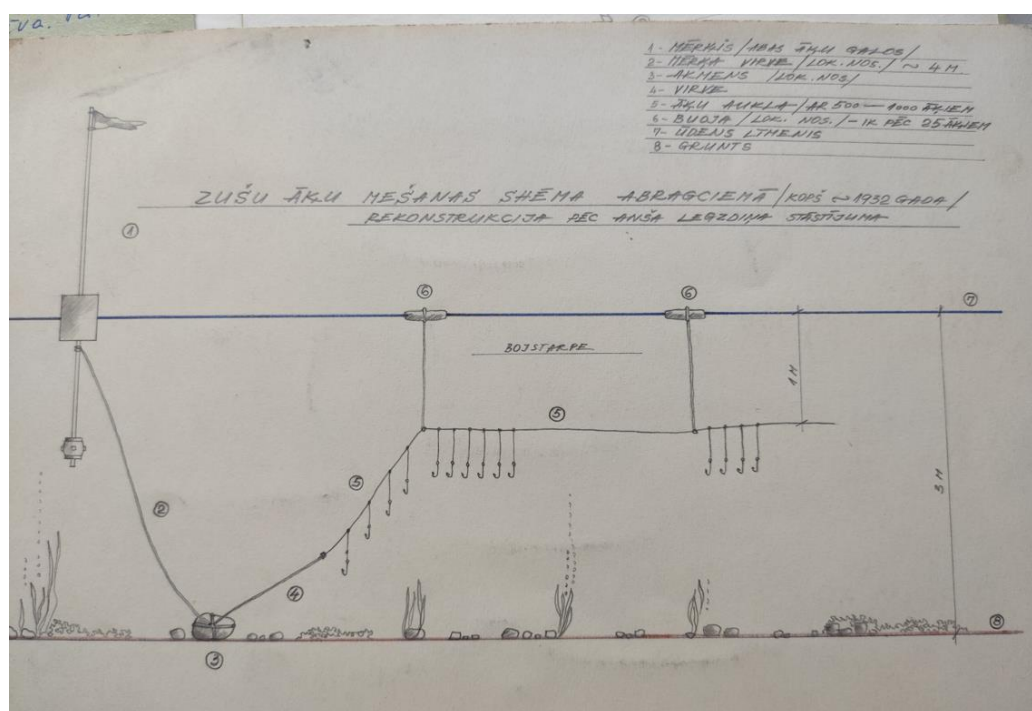 1- MĒRĶIS /ABAS ĀĶU GALOS/
2- MĒRĶA VIRVE /LOK. NOS./ ~ 4 M.
3- AKMENS /LOK. NOS/
4- VIRVE
5- ĀĶU AUKLA /AR 500 — 1000 ĀĶIEM
6- BUOJA /LOK. NOS./ - IK PĒC 25 ĀĶIEM
7- ŪDENS LĪMENIS
8- GRUNTS
ZUŠU ĀĶU MEŠANAS SHĒMA ABRAGCIEMĀ /KOPŠ ~ 1932 GADA/
REKONSTRUKCIJA PĒC ANŠA LEGZDIŅA STĀSTĪJUMA
1
6
6
7
BOJSTARPE
1 M
5
5
3 M
2
4
8
3